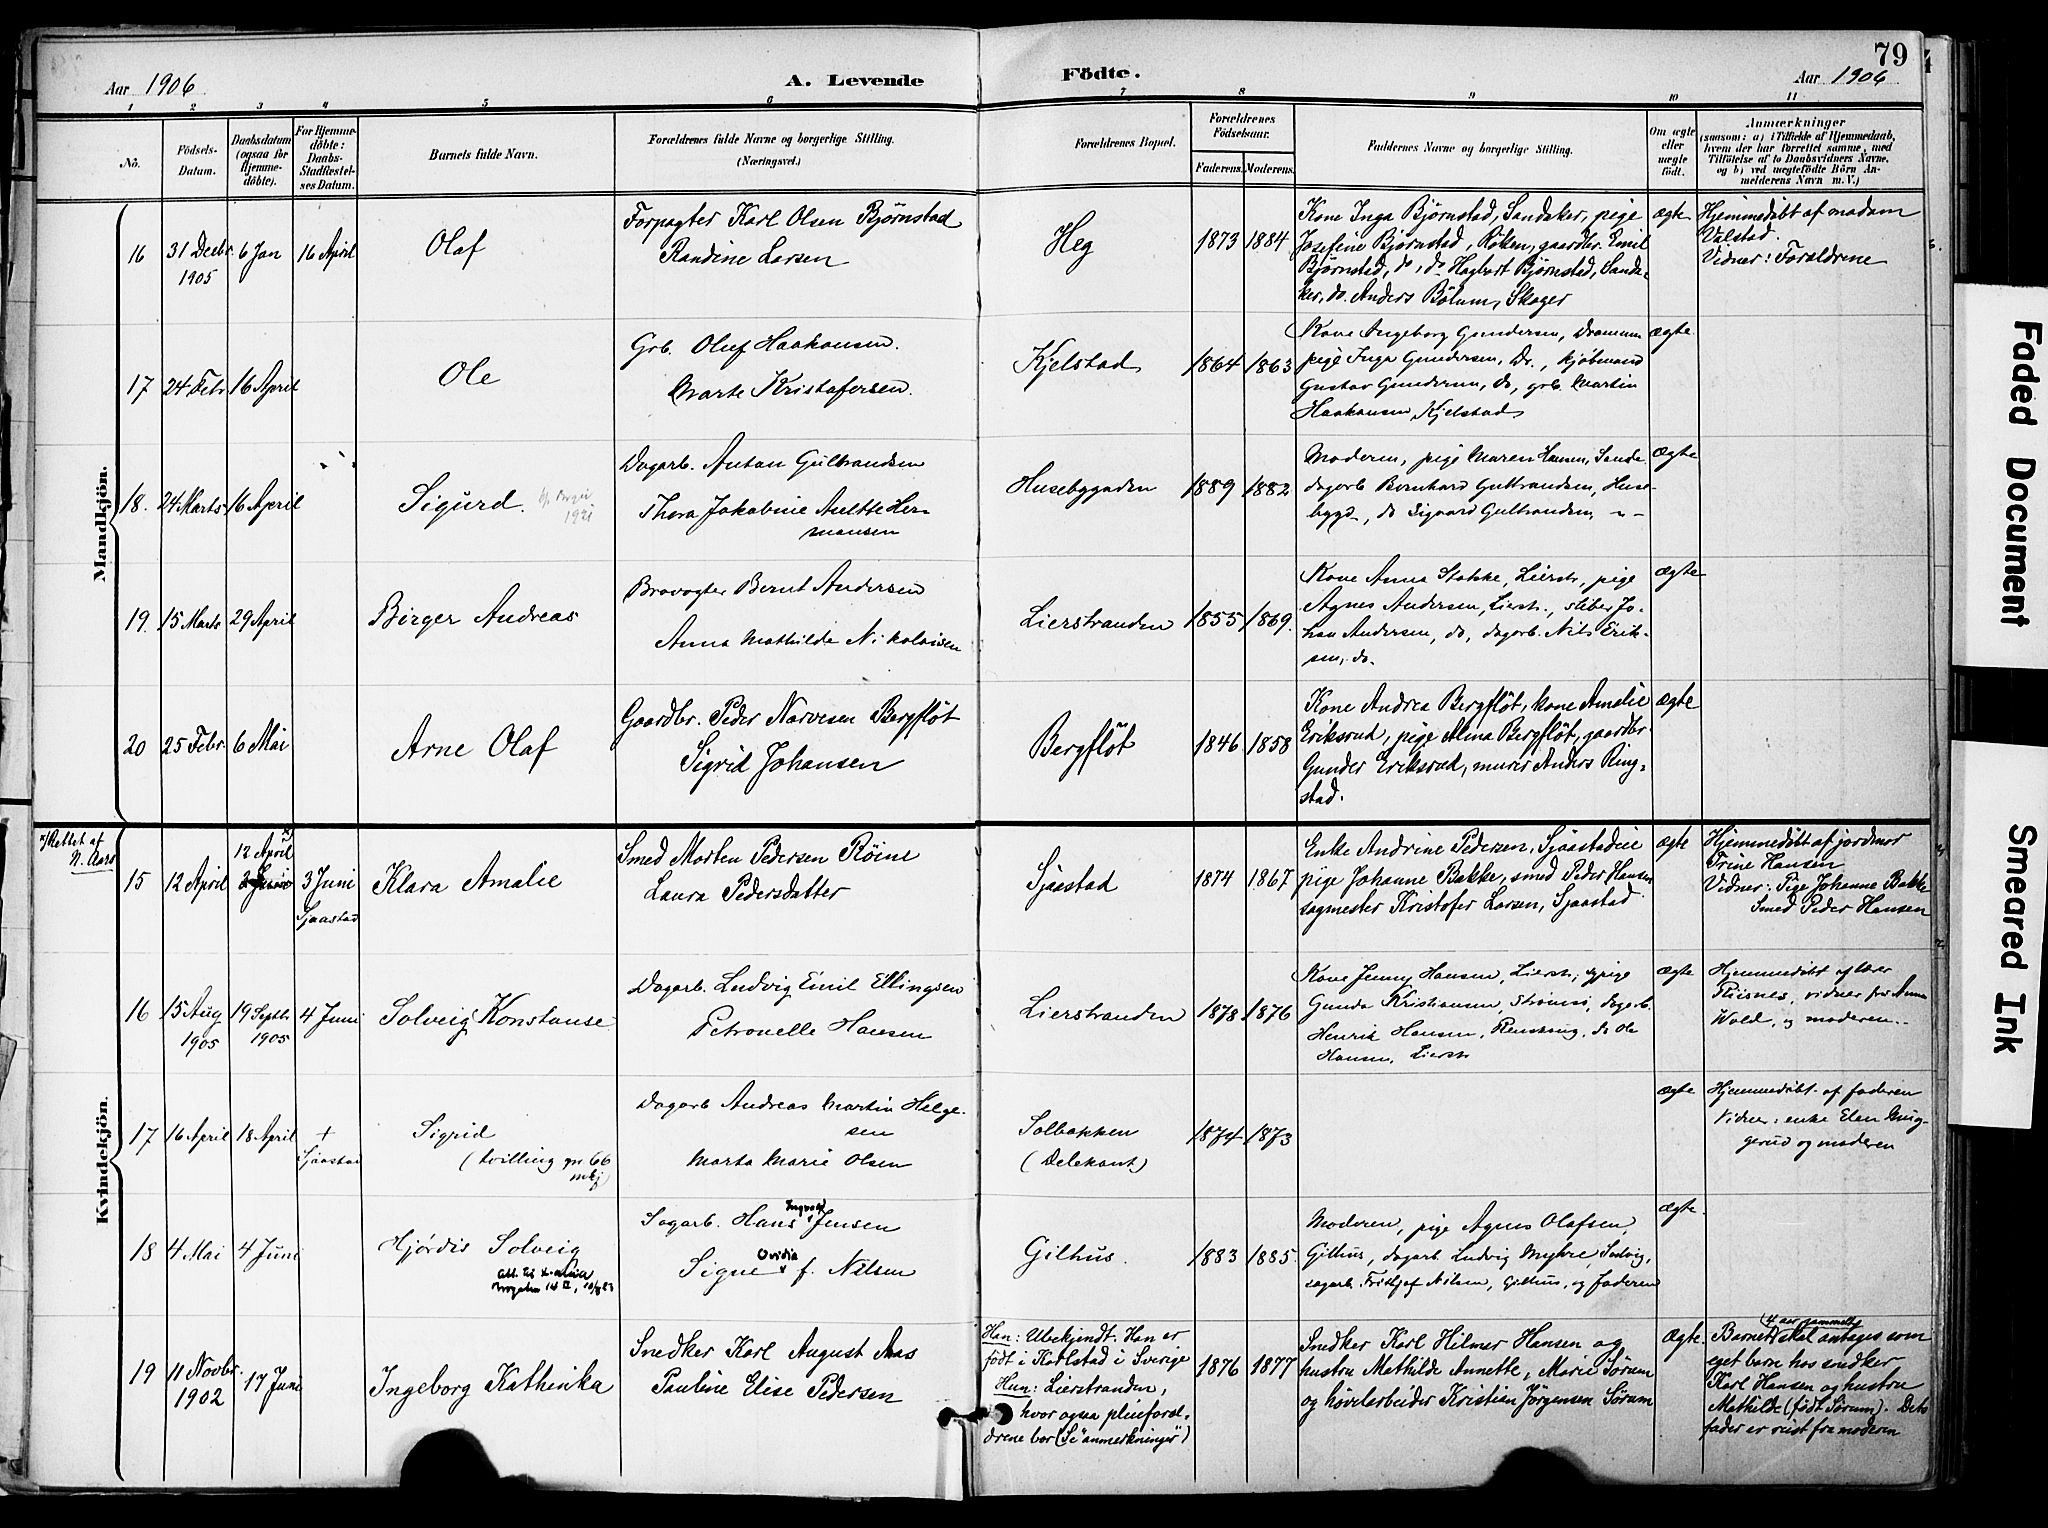 79
Aar 1906
A. Levende
Födte.
Aar 1906
1 2 3 4 5 6 7 8 9 10 11
Nö.
Födsels-
Datum.
Daabsdatum
(ogsaa for
Hjemme-
döbte).
For Hjemme-
döbte:
Daabs-
Stadfæstel-
ses Datum.
Barnets fulde Navn.
Forældrenes fulde Navne og borgerlige Stilling.
(Næringsvei.)
Forældrenes Bopæl.
Forældrenes
Födselsaar.
Faderens. Moderens.
Faddernes Navne og borgerlige Stilling.
Om ægte
eller
uægte
födt.
Anmærkninger
(saasom: a) i Tilfælde af Hjemmedaab,
hvem der har forrettet samme, med
Tilföielse af to Daabsvidners Navne,
og b) ved uægtefödte Börn An-
melderens Navn m. V.)
Mandkjön.
16
31 Decbr.
1905
6 Jan
16 April
Olaf
Forpagter Karl Olsen Bjørnstad
Randine Larsen
Heg
1873
1884
Kone Inga Bjørnstad, Sandaker, pige
Josefine Bjørnstad, Røken, gaardbr. Emil
Bjørnstad, do, do Hagbart Bjørnstad, Sanda-
ker, do. Anders Bölum, Skoger
ægte
Hjemmedöbt af madam
Valstad.
Vidner: Forældrene
17
24 Febr
16 April
Ole
Grb. Oluf Haakonsen.
Marte Kristofersen.
Kjelstad
1864
1863
Kone Ingeborg Gundersen, Drammen
pige Inga Gundersen, Dr., kjøbmand
Gustav Gundersen, do, grb. Martin
Haakonsen, Kjelstad
ægte.
18.
24 Marts
16 April
Sigurd.
1921
Dagarb. Anton Gulbrandsen
Thora Jakobine Anette Her-
mansen
Husebygaden
1889
1882
Moderen, pige Maren Hansen, Sande
dagarb Bernhard Gulbrandsen, Huse-
bygd, do Sigvard Gulbrandsen, -"-
Ægte
19.
15 Marts
29 April
Birger Andreas
Brovogter Bernt Andersen
Anna Mathilde Nikolaisen
Lierstranden
1855
1869.
Kone Anna Stokke, Lierstr, pige
Agnes Andersen, Lierst., støber Jo-
han Andersen, do, dagarb. Nils Erik-
sen, do.
Ægte
20
25 Febr
6 Mai
Arne Olaf
Gaardbr. Peder Narvesen Bergflöt
Sigrid Johansen
Bergflöt
1846
1858
Kone Andrea Bergflöt, kone Amalie
Eriksrud, pige Alma Bergflöt, gaardbr
Gunder Eriksrud, murer Anders Ring-
stad.
Ægte
Kvindekjön.
x) Rettet af
N. Aars
15
12 April
12 April x)
3 Juni
3 Juni
Sjaastad
Klara Amalie
Smed Morten Pedersen Röine
Laura Pedersdatter
Sjaastad
1874
1867
Enke Andrine Pedersen, Sjaastadeie
pige Johanne Bakke, smed Peder Hansen
sagmester Kristofer Larsen, Sjaastad
ægte
Hjemmedöbt af jordmor
Trine Hansen
Vidner: Pige Johanne Bakke
Smed Peder Hansen
16
15 Aug
1905
19 Septbr
1905
4 Juni
Solveig Konstanse
Dagarb. Ludvig Emil Ellingsen
Petronelle Hansen
Lierstranden
1878
1876
Kone Jenny Hansen, Lierstr, pige
Gunda Kristiansen, Strömsö, dagarb.
Henrik Hansen, do Ole
Hansen, Lierstr
ægte
Hjemmedöbt af lærer
Riisnes, vidner fru Anna
Wold, og moderen.
17
16 April
18 April
+
Sjaastad
Sigrid
(tvilling m 66
mkj)
Dagarb Andreas Martin Helge-
sen
Marta Marie Olsen
Solbakken
(Delekant)
1874
1873
ægte
Hjemmedöbt af faderen
Vidner: enke Elen Mug-
gerud og moderen
18
4 Mai
4 Juni
Hjørdis Solveig
Sagarb. Hans Ingvald Jensen
Signe Ovidia f. Nilsen
Gilhus.
1883
1885.
Moderen, pige Agnes Olafsen,
Gilhus, dagarb Ludvig Myhre, Solvig,
sagarb. Fridtjof Nilsen, Gilhus, og faderen
ægte.
19
11 Novbr.
1902
17 Juni
Ingeborg Kathinka
Snedker Karl August Aas
Pauline Elise Pedersen
Han: Ubekjendt. Han er
født i Karlstad i Sverige
Hun: Lierstranden,
hvor ogsaa pleieforæl-
drene bor (Se "anmerkninger")
1876
1877
Snedker Karl Hilmer Hansen og
hustru Mathilde Annette, Marie Sørum
og høvelarbeider Kristian Jørgensen Sørum
Ægte.
(4 aar gammelt)
Barnet skal antages som
eget barn hos snedker
Karl Hansen og hustru
Mathilde (født Sørum). Dets
fader er reist fra moderen
Faded Document
Smeared Ink